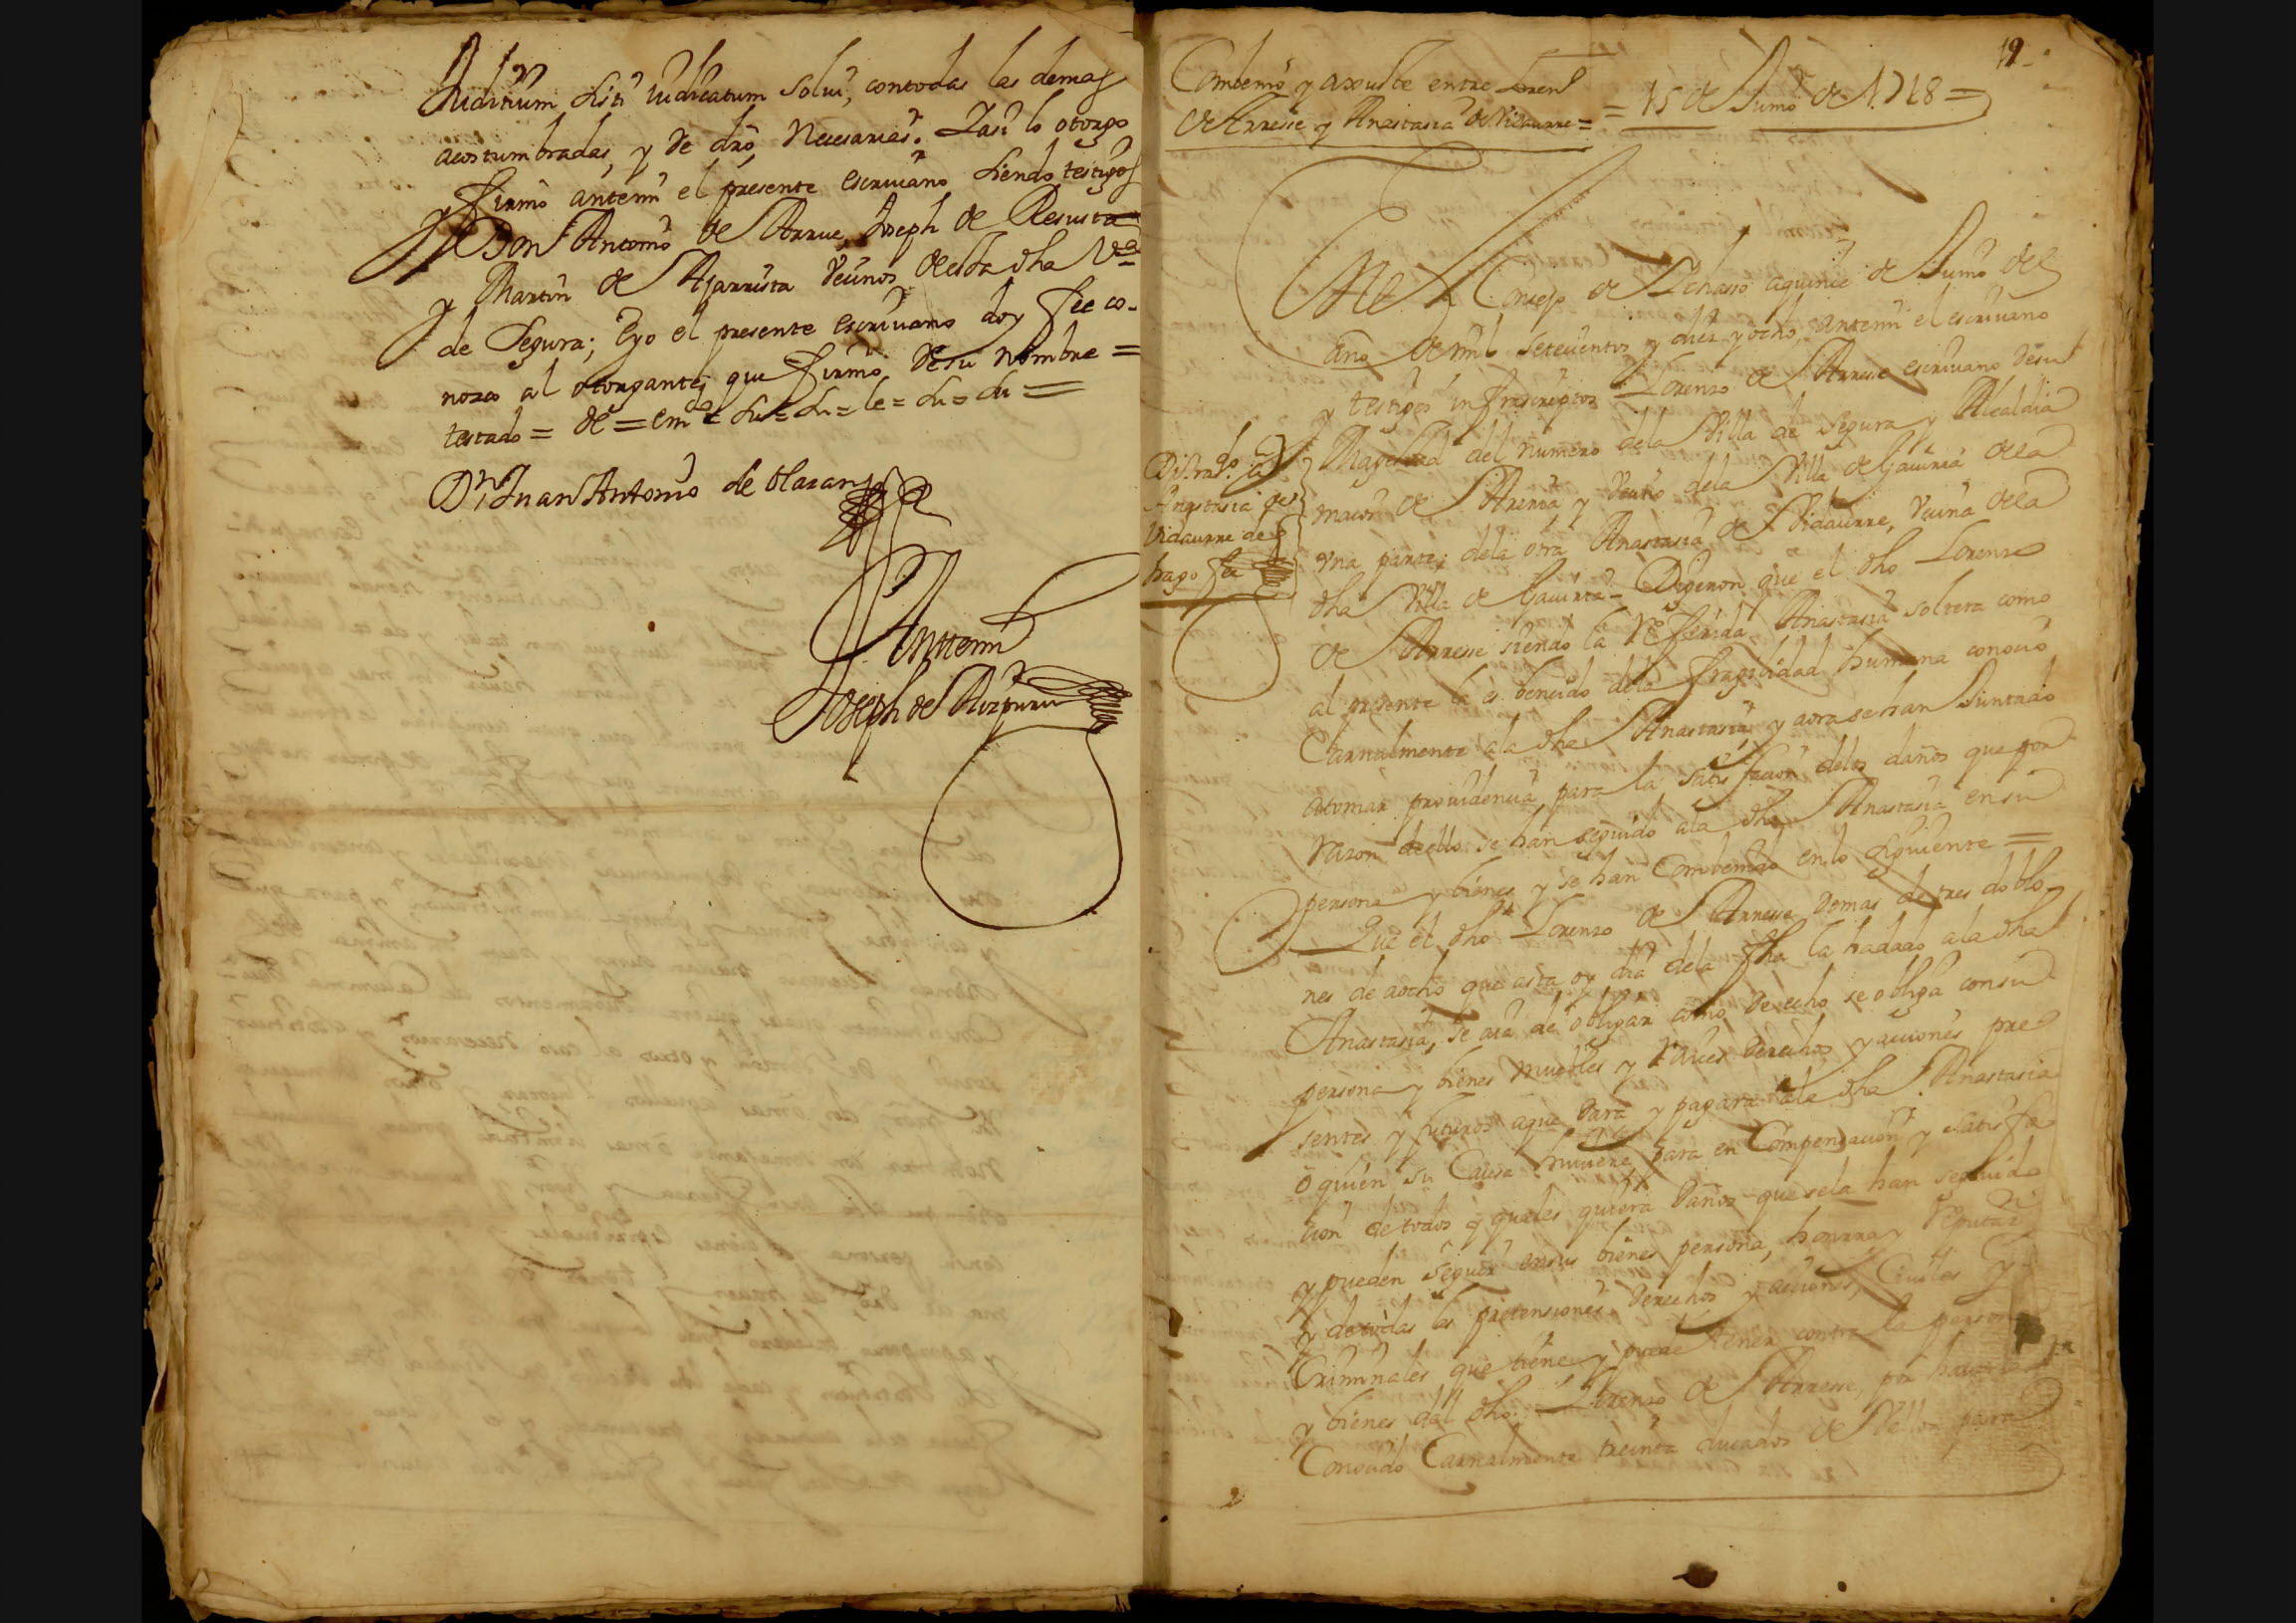 Juditium sisti judicatum solui, contodas las demas
acostumbradas, y de dro Necesarias. Yasi lo otorgo
y firmo antemi el presente escriuano siendo testigos
Don Antonio de Arrue, Joseph de Resusta
y Martin de Ajarrista vecinos de esta dha Va
de Segura; Eyo el presente escriuano doy fee co-
nozco al otorgante, que firmo de su nombre =
testado = de = em
Dn Juan Antonio de Olaran
Antemi
Joseph de Aizpuru
19
Combenio y axuste entre Loren
de Arresse y Anastasia de Vidaurre =
= 15 de Junio de 1718 =
En el Concejo de Ychasso aquince de Junio del
año de mil setecientos y diez y ocho, antemi el escriuano
y testigos infrascriptos Lorenzo de Arresse escriuano desu
Magestad del numero dela Villa de Segura y Alcaldia
maior de Areria y vecino dela Villa de Gauiria dela
vna parte; dela otra Anastasia de Vidaurre, vecina dela
dha Villa de Gauiria = Digeron que el dho Lorenzo
de Arresse siendo la Referida Anastasia soltera como
al presente lo es bencido dela fragilidad humana conocio
Carnalmente ala dha Anastasia, y aora se han Juntado
atomar prouidencia para la satisfacion delos daños que por
razon de ello se han seguido ala dha Anastasia en su
persona y bienes y se han Combenido en lo siguiente =
Que el dho Lorenzo de Arresse demas de tres doblo-
nes de aocho que asta oy dia dela fha la hadado ala dha
Anastasia, se aia de obligar como de echo se obliga consu
persona y bienes muebles y raices derechos y acciones pre
sentes y futuros aque dara y pagara ala dha Anastasia
o quien su Causa huuiere, para en Compensacion y satisfa
cion de todos y quales quiera daños que sela han seguido
y pueden seguir en sus bienes, persona, honrra y Reputazn
y de todas las pretensiones derechos y acciones, Ciuiles y
Criminales que tiene, y puede tener contra la persona
y bienes del dho Lorenzo de Arresse, por hauerla
Conocido Carnalmente treinta ducados de Vellon para
Anastasia de
Vidaurre de
hago fee